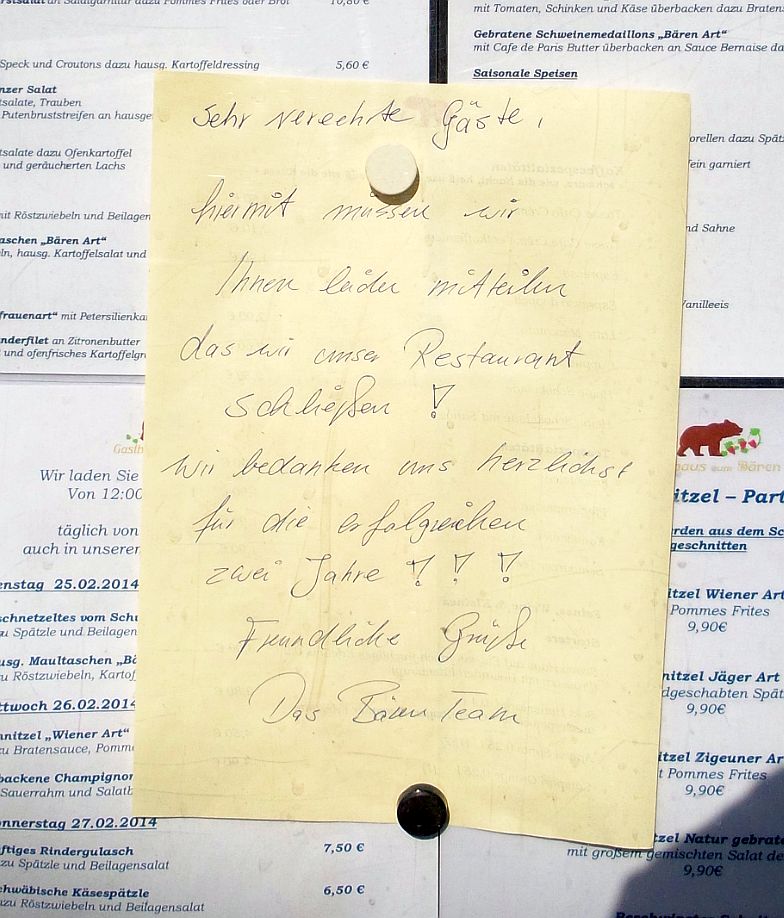 Salat an Salatgarnitur dazu Pommes Frites oder Brot 10,80 €
Speck und Croutons dazu hausg. Kartoffeldressing 5,60 €
nzer Salat
tsalate, Trauben
Putenbruststreifen an hausge
tsalate dazu Ofenkartoffel
und geräucherten Lachs
mit Röstzwiebeln und Beilagen
aschen „Bären Art“
ln, hausg. Kartoffelsalat und
frauenart“ mit Petersilienka
nderfilet an Zitronenbutter
und ofenfrisches Kartoffelgr
mit Tomaten, Schinken und Käse überbacken dazu Bratens
Gebratene Schweinemedaillons „Bären Art“
mit Cafe de Paris Butter überbacken an Sauce Bernaise da
Saisonale Speisen
orellen dazu Spät
ein garniert
nd Sahne
Vanilleeis
Sehr verechrte Gäste,
hiermit müssen wir
Ihnen leider mitteilen
das wir unser Restaurant
schließen !
wir bedanken uns herzlichst
für die erfolgreichen
zwei Jahre ! ! !
Freundliche Grüße
Das Bären Team
Gasth
Wir laden Sie
Von 12:00
täglich von
auch in unserer
enstag 25.02.2014
schnetzeltes vom Schw
zu Spätzle und Beilagen
usg. Maultaschen „Bä
zu Röstzwiebeln, Kartof
ttwoch 26.02.2014
hnitzel „Wiener Art“
zu Bratensauce, Pomm
backene Champignon
Sauerrahm und Salatb
onnerstag 27.02.2014
ftiges Rindergulasch 7,50 €
zu Spätzle und Beilagensalat
chwäbische Käsespätzle 6,50 €
zu Röstzwiebeln und Beilagensalat
haus zum Bären
itzel – Part
rden aus dem Sc
geschnitten
itzel Wiener Art
Pommes Frites
9,90€
nitzel Jäger Art
dgeschabten Spät
9,90€
nitzel Zigeuner Ar
t Pommes Frites
9,90€
tzel Natur gebrate
mit großem gemischten Salat de
9,90€